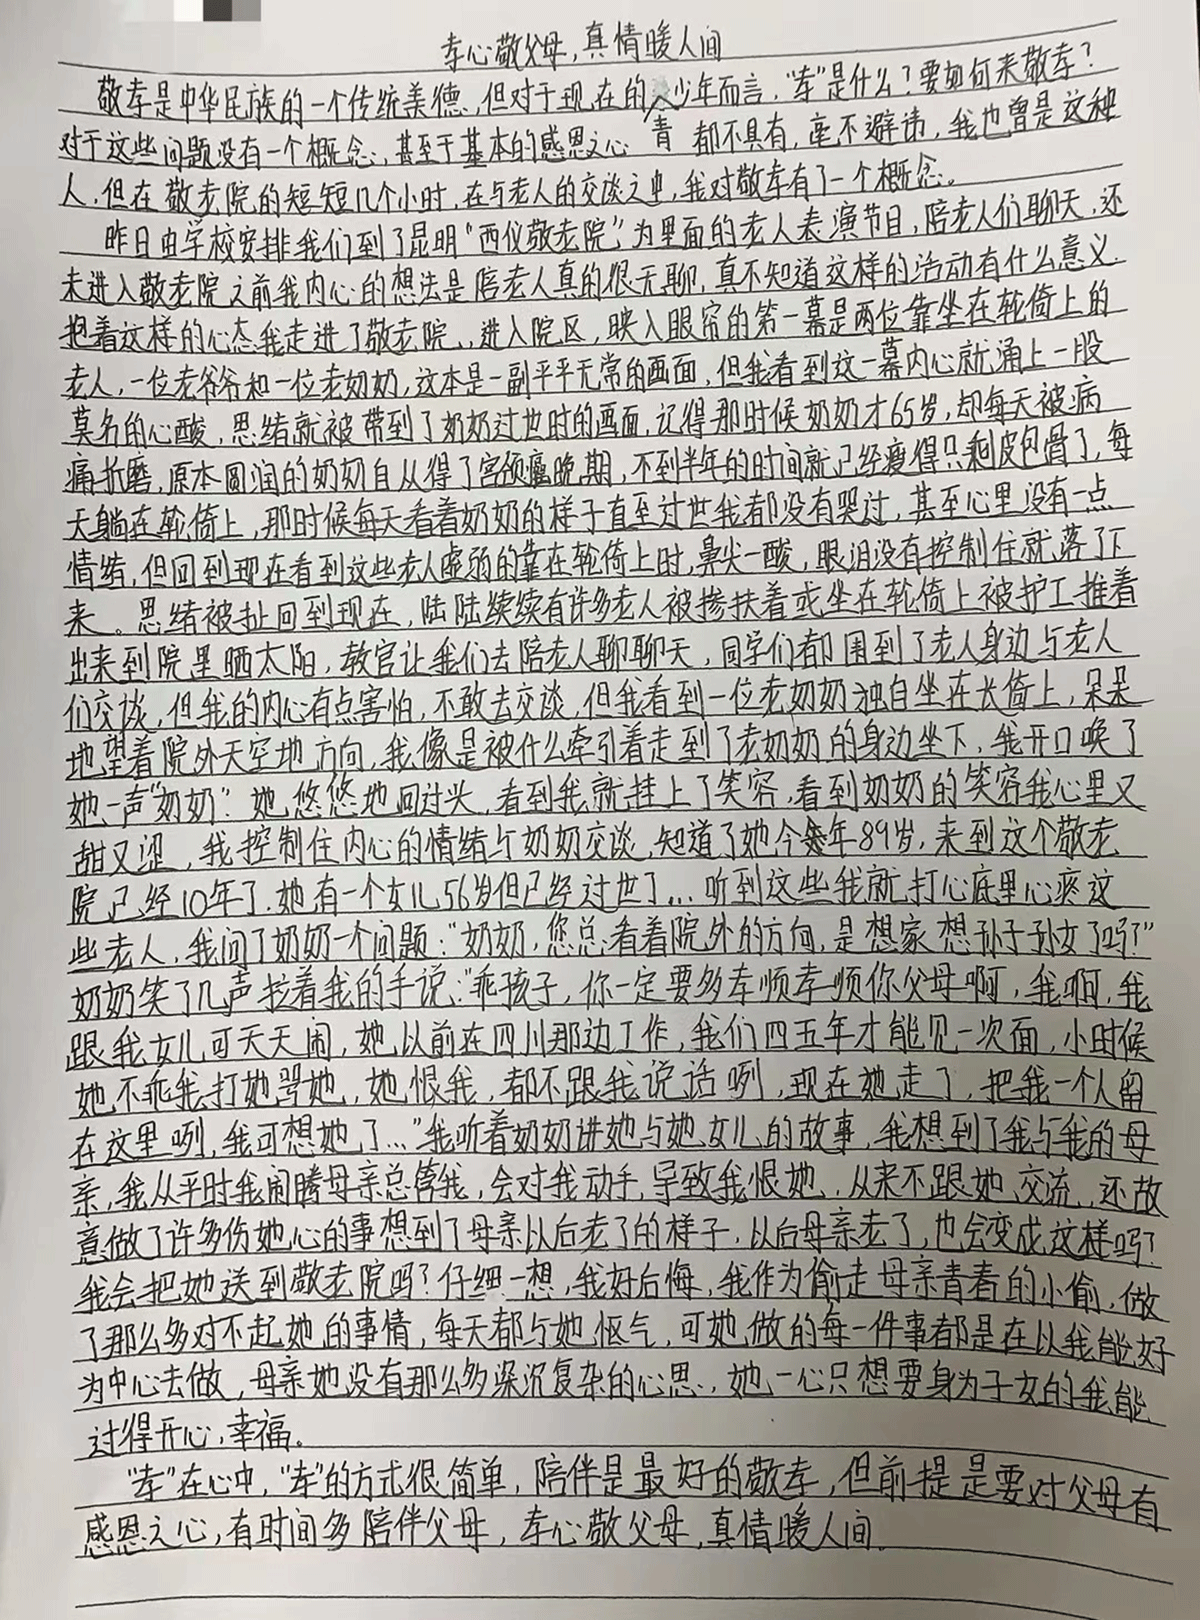 孝心敬父母，真情暖人间
敬孝是中华民族的一个传统美德，但对于现在的青少年而言，“孝”是什么？要如何来敬孝？
对于这些问题没有一个概念，甚至于基本的感恩之心都不具有，毫不避讳，我也曾是这种
人，但在敬老院的短短几个小时，在与老人的交谈之中，我对敬孝有了一个概念。
昨日由学校安排我们到了昆明“西仪敬老院”为里面的老人表演节目，陪老人们聊天，还
未进入敬老院之前我内心的想法是陪老人真的很无聊，真不知道这样的活动有什么意义.
抱着这样的心态我走进了敬老院，进入院区，映入眼帘的第一幕是两位靠坐在轮倚上的
老人，一位老爷爷和一位老奶奶，这本是一副平平无常的画面，但我看到这一幕内心就涌上一股
莫名的心酸，思绪就被带到了奶奶过世时的画面，记得那时候奶奶才65岁，却每天被病
痛折磨，原本圆润的奶奶自从得了宫颈癌晚期，不到半年的时间就已经瘦得只剩皮包骨了，每
天躺在轮倚上，那时候每天看着奶奶的样子直至过世我都没有哭过，甚至心里没有一点
情绪，但回到现在看到这些老人虚弱的靠在轮倚上时，鼻尖一酸，眼泪没有控制住就落了下
来。思绪被扯回到现在，陆陆续续有许多老人被掺扶着或坐在轮倚上被护工推着
出来到院里晒太阳，教官让我们去陪老人聊聊天，同学们都围到了老人身边与老人
们交谈，但我的内心有点害怕，不敢去交谈，但我看到一位老奶奶独自坐在长倚上，呆呆
地望着院外天空地方向，我像是被什么牵引着走到了老奶奶的身边坐下，我开口唤了
她一声“奶奶”她悠悠地回过头，看到我就挂上了笑容，看到奶奶的笑容我心里又
甜又涩，我控制住内心的情绪与奶奶交谈，知道了她今年89岁，来到这个敬老
院已经10年了.她有一个女儿56岁但已经过世了...听到这些我就打心底里心疼这
些老人，我问了奶奶一个问题：“奶奶，您总看着院外的方向，是想家想孙子孙女了吗？”
奶奶笑了几声拉着我的手说：“乖孩子，你一定要多孝顺孝顺你父母啊，我啊，我
跟我女儿可天天闹，她以前在四川那边工作，我们四五年才能见一次面，小时候
她不乖我打她骂她，她恨我，都不跟我说话咧，现在她走了，把我一个人留
在这里咧，我可想她了...”我听着奶奶讲她与她女儿的故事，我想到了我与我的母
亲，我从平时我闹腾母亲总管我，会对我动手，导致我恨她，从来不跟她交流，还故
意做了许多伤她心的事想到了母亲以后老了的样子，以后母亲老了，也会变成这样吗？
我会把她送到敬老院吗？仔细一想，我好后悔，我作为偷走母亲青春的小偷，做
了那么多对不起她的事情，每天都与她怄气，可她做的每一件事都是在以我能好
为中心去做，母亲她没有那么多深沉复杂的心思，她一心只想要身为子女的我能
过得开心，幸福。
“孝”在心中，“孝”的方式很简单，陪伴是最好的敬孝，但前提是要对父母有
感恩之心，有时间多陪伴父母，孝心敬父母，真情暖人间。